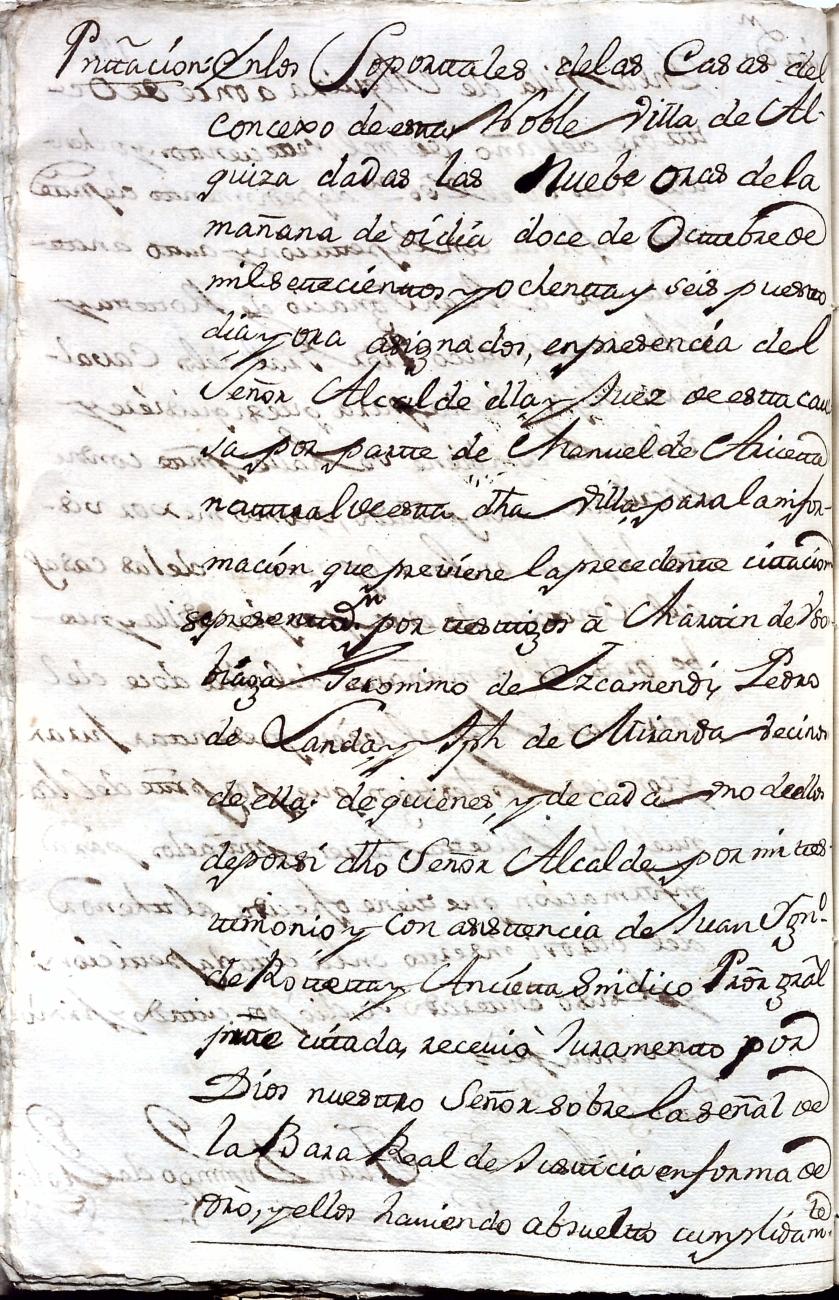 Prntacion: En los Soportales de las Casas del
Concexo de esta Noble Villa de Al-
quiza dadas las Nuebe oras de la
mañana de oi dia doce de Octubre de
mil setecientos y ochenta y seis puesto
dia y ora asignados, en presencia del
Señor Alcalde de ella y Juez de esta cau
sa por parte de Manuel de Ariceta
natural de esta dha Villa para la infor-
mación que previene la precedente citacion
se presentaron por testigos a Martin de
Geronimo de Izcamendi, Pedro
de Landa, y Jph de Miranda vecinos
de ella; de quienes, y de cada uno de ellos
de por si dho Señor Alcalde por mi tes-
timonio y con asistencia de Juan Ygn.º
de Roteta y Ancieta Sindico Prõr grãl
parte citada, recevió Juramento por
Dios nuestro Señor sobre la señal de
la Bara Real de Justicia en forma de
dro, y ellos haviendo absuelto cumplidam.te